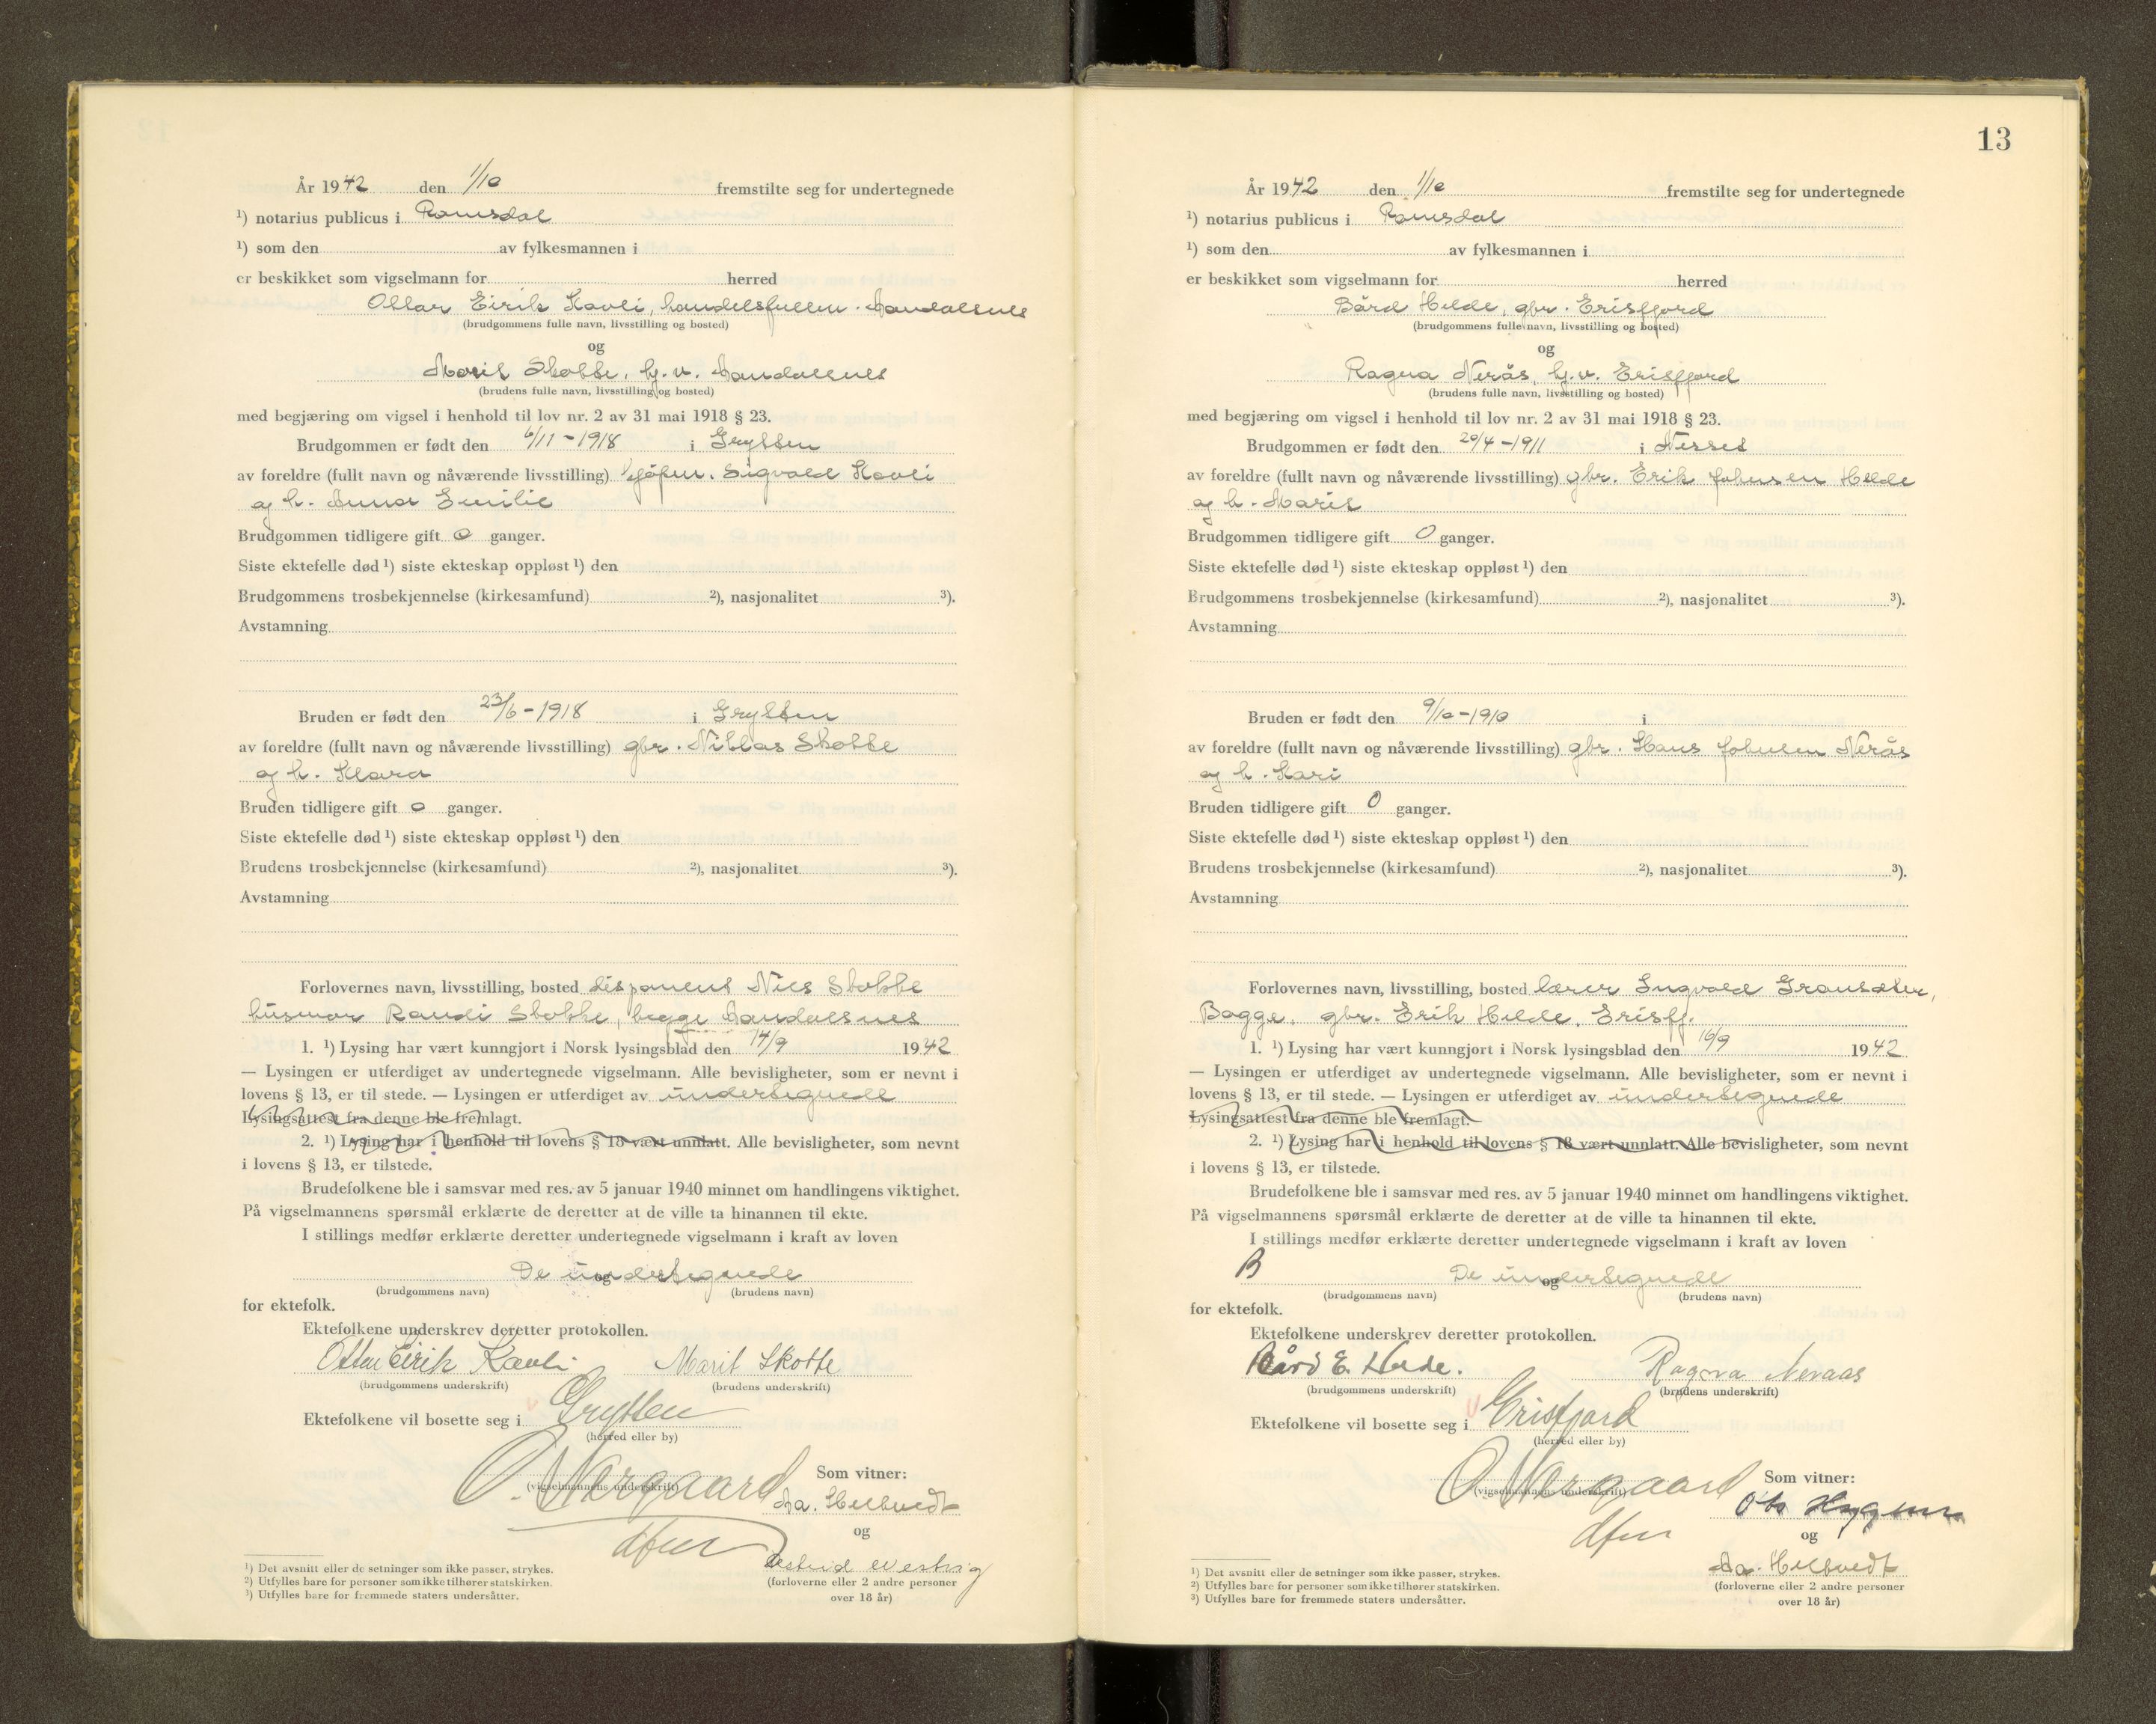 År 1942 den 1/10 fremstilte seg for undertegnede
¹) notarius publicus i Romsdal
¹) som den av fylkesmannen i
er beskikket som vigselmann for herred
Ottar Eirik Kavli, handelsfullm. Aandalsnes
(brudgommens fulle navn, livsstilling og bosted)
og
Marit Skotte, hj.v. Aandalsnes
(brudens fulle navn, livsstilling og bosted)
med begjæring om vigsel i henhold til lov nr. 2 av 31 mai 1918 § 23.
Brudgommen er født den 6/11-1918 i Grytten
av foreldre (fullt navn og nåværende livsstilling) Sigvald Kavli
og h. Anna Emilie
Brudgommen tidligere gift 0 ganger.
Siste ektefelle død ¹) siste ekteskap oppløst ¹) den
Brudgommens trosbekjennelse (kirkesamfund) ²), nasjonalitet ³).
Avstamning
Bruden er født den 23/6-1918 i Grytten
av foreldre (fullt navn og nåværende livsstilling) gbr. Niklas Skotte
og h. Klara
Bruden tidligere gift 0 ganger.
Siste ektefelle død ¹) siste ekteskap oppløst ¹) den
Brudens trosbekjennelse (kirkesamfund) ²), nasjonalitet ³).
Avstamning
Forlovernes navn, livsstilling, bosted disponent Nils Stokke
husmor Randi Stokke, begge Aandalsnes
1. ¹) Lysing har vært kunngjort i Norsk lysingsblad den 14/9 1942
— Lysingen er utferdiget av undertegnede vigselmann. Alle bevisligheter, som er nevnt i
lovens § 13, er til stede. — Lysingen er utferdiget av undertegnede
Lysingsattest fra denne ble fremlagt.
2. ¹) Lysing har i henhold til lovens § 18 vært unnlatt. Alle bevisligheter, som nevnt
i lovens § 13, er tilstede.
Brudefolkene ble i samsvar med res. av 5 januar 1940 minnet om handlingens viktighet.
På vigselmannens spørsmål erklærte de deretter at de ville ta hinannen til ekte.
I stillings medfør erklærte deretter undertegnede vigselmann i kraft av loven
De undertegnede
og
(brudgommens navn) (brudens navn)
for ektefolk.
Ektefolkene underskrev deretter protokollen.
Ottar Eirik Kavli Marit Skotte
(brudgommens underskrift) (brudens underskrift)
Ektefolkene vil bosette seg i Grytten
(herred eller by)
O. Nørgaard Som vitner:
(vigselmannens underskrift)
Aa. Heltvedt
og
dfm
(forloverne eller 2 andre personer
over 18 år)
¹) Det avsnitt eller de setninger som ikke passer, strykes.
²) Utfylles bare for personer som ikke tilhører statskirken.
³) Utfylles bare for fremmede staters undersåtter.
13
År 1942 den 1/10 fremstilte seg for undertegnede
¹) notarius publicus i Romsdal
¹) som den av fylkesmannen i
er beskikket som vigselmann for herred
Bård Helde, gbr. Erisfjord
(brudgommens fulle navn, livsstilling og bosted)
og
Ragna Nerås, hj.v. Erisfjord
(brudens fulle navn, livsstilling og bosted)
med begjæring om vigsel i henhold til lov nr. 2 av 31 mai 1918 § 23.
Brudgommen er født den 20/4-1911 i Nesset
av foreldre (fullt navn og nåværende livsstilling) gbr. Erik Johnsen Helde
og h. Marit
Brudgommen tidligere gift 0 ganger.
Siste ektefelle død ¹) siste ekteskap oppløst ¹) den
Brudgommens trosbekjennelse (kirkesamfund) ²), nasjonalitet ³).
Avstamning
Bruden er født den 9/10-1910 i
av foreldre (fullt navn og nåværende livsstilling) gbr. Hans Johnsen Nerås
og h. Kari
Bruden tidligere gift 0 ganger.
Siste ektefelle død ¹) siste ekteskap oppløst ¹) den
Brudens trosbekjennelse (kirkesamfund) ²), nasjonalitet ³).
Avstamning
Forlovernes navn, livsstilling, bosted lærer Ingvald Gransæter,
Bogge, gbr. Erik Helde, Erisfj.
1. ¹) Lysing har vært kunngjort i Norsk lysingsblad den 16/9 1942
— Lysingen er utferdiget av undertegnede vigselmann. Alle bevisligheter, som er nevnt i
lovens § 13, er til stede. — Lysingen er utferdiget av undertegnede
Lysingsattest fra denne ble fremlagt.
2. ¹) Lysing har i henhold til lovens § 18 vært unnlatt. Alle bevisligheter, som nevnt
i lovens § 13, er tilstede.
Brudefolkene ble i samsvar med res. av 5 januar 1940 minnet om handlingens viktighet.
På vigselmannens spørsmål erklærte de deretter at de ville ta hinannen til ekte.
I stillings medfør erklærte deretter undertegnede vigselmann i kraft av loven
B De undertegnede
og
(brudgommens navn) (brudens navn)
for ektefolk.
Ektefolkene underskrev deretter protokollen.
Bård E. Helde. Ragna Neraas
(brudgommens underskrift) (brudens underskrift)
Ektefolkene vil bosette seg i Erisfjord
(herred eller by)
O. Nørgaard Som vitner:
(vigselmannens underskrift)
og
dfm
Aa. Heltvedt
(forloverne eller 2 andre personer
over 18 år)
¹) Det avsnitt eller de setninger som ikke passer, strykes.
²) Utfylles bare for personer som ikke tilhører statskirken.
³) Utfylles bare for fremmede staters undersåtter.